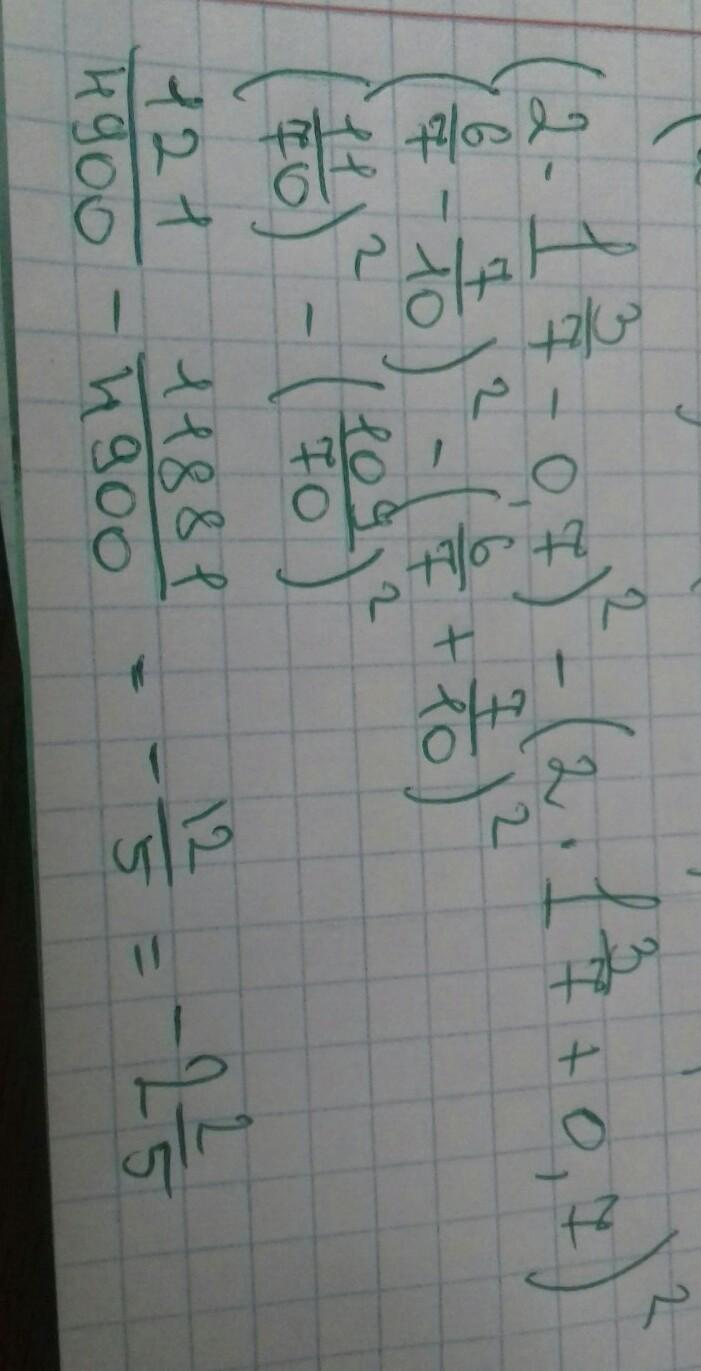 (2 · 1 3/7 - 0,7)² - (2 · 1 3/7 + 0,7)²
(6/7 - 7/10)² - (6/7 + 7/10)²
(11/70)² - (109/70)²
121/4900 - 11881/4900 = - 12/5 = - 2 2/5